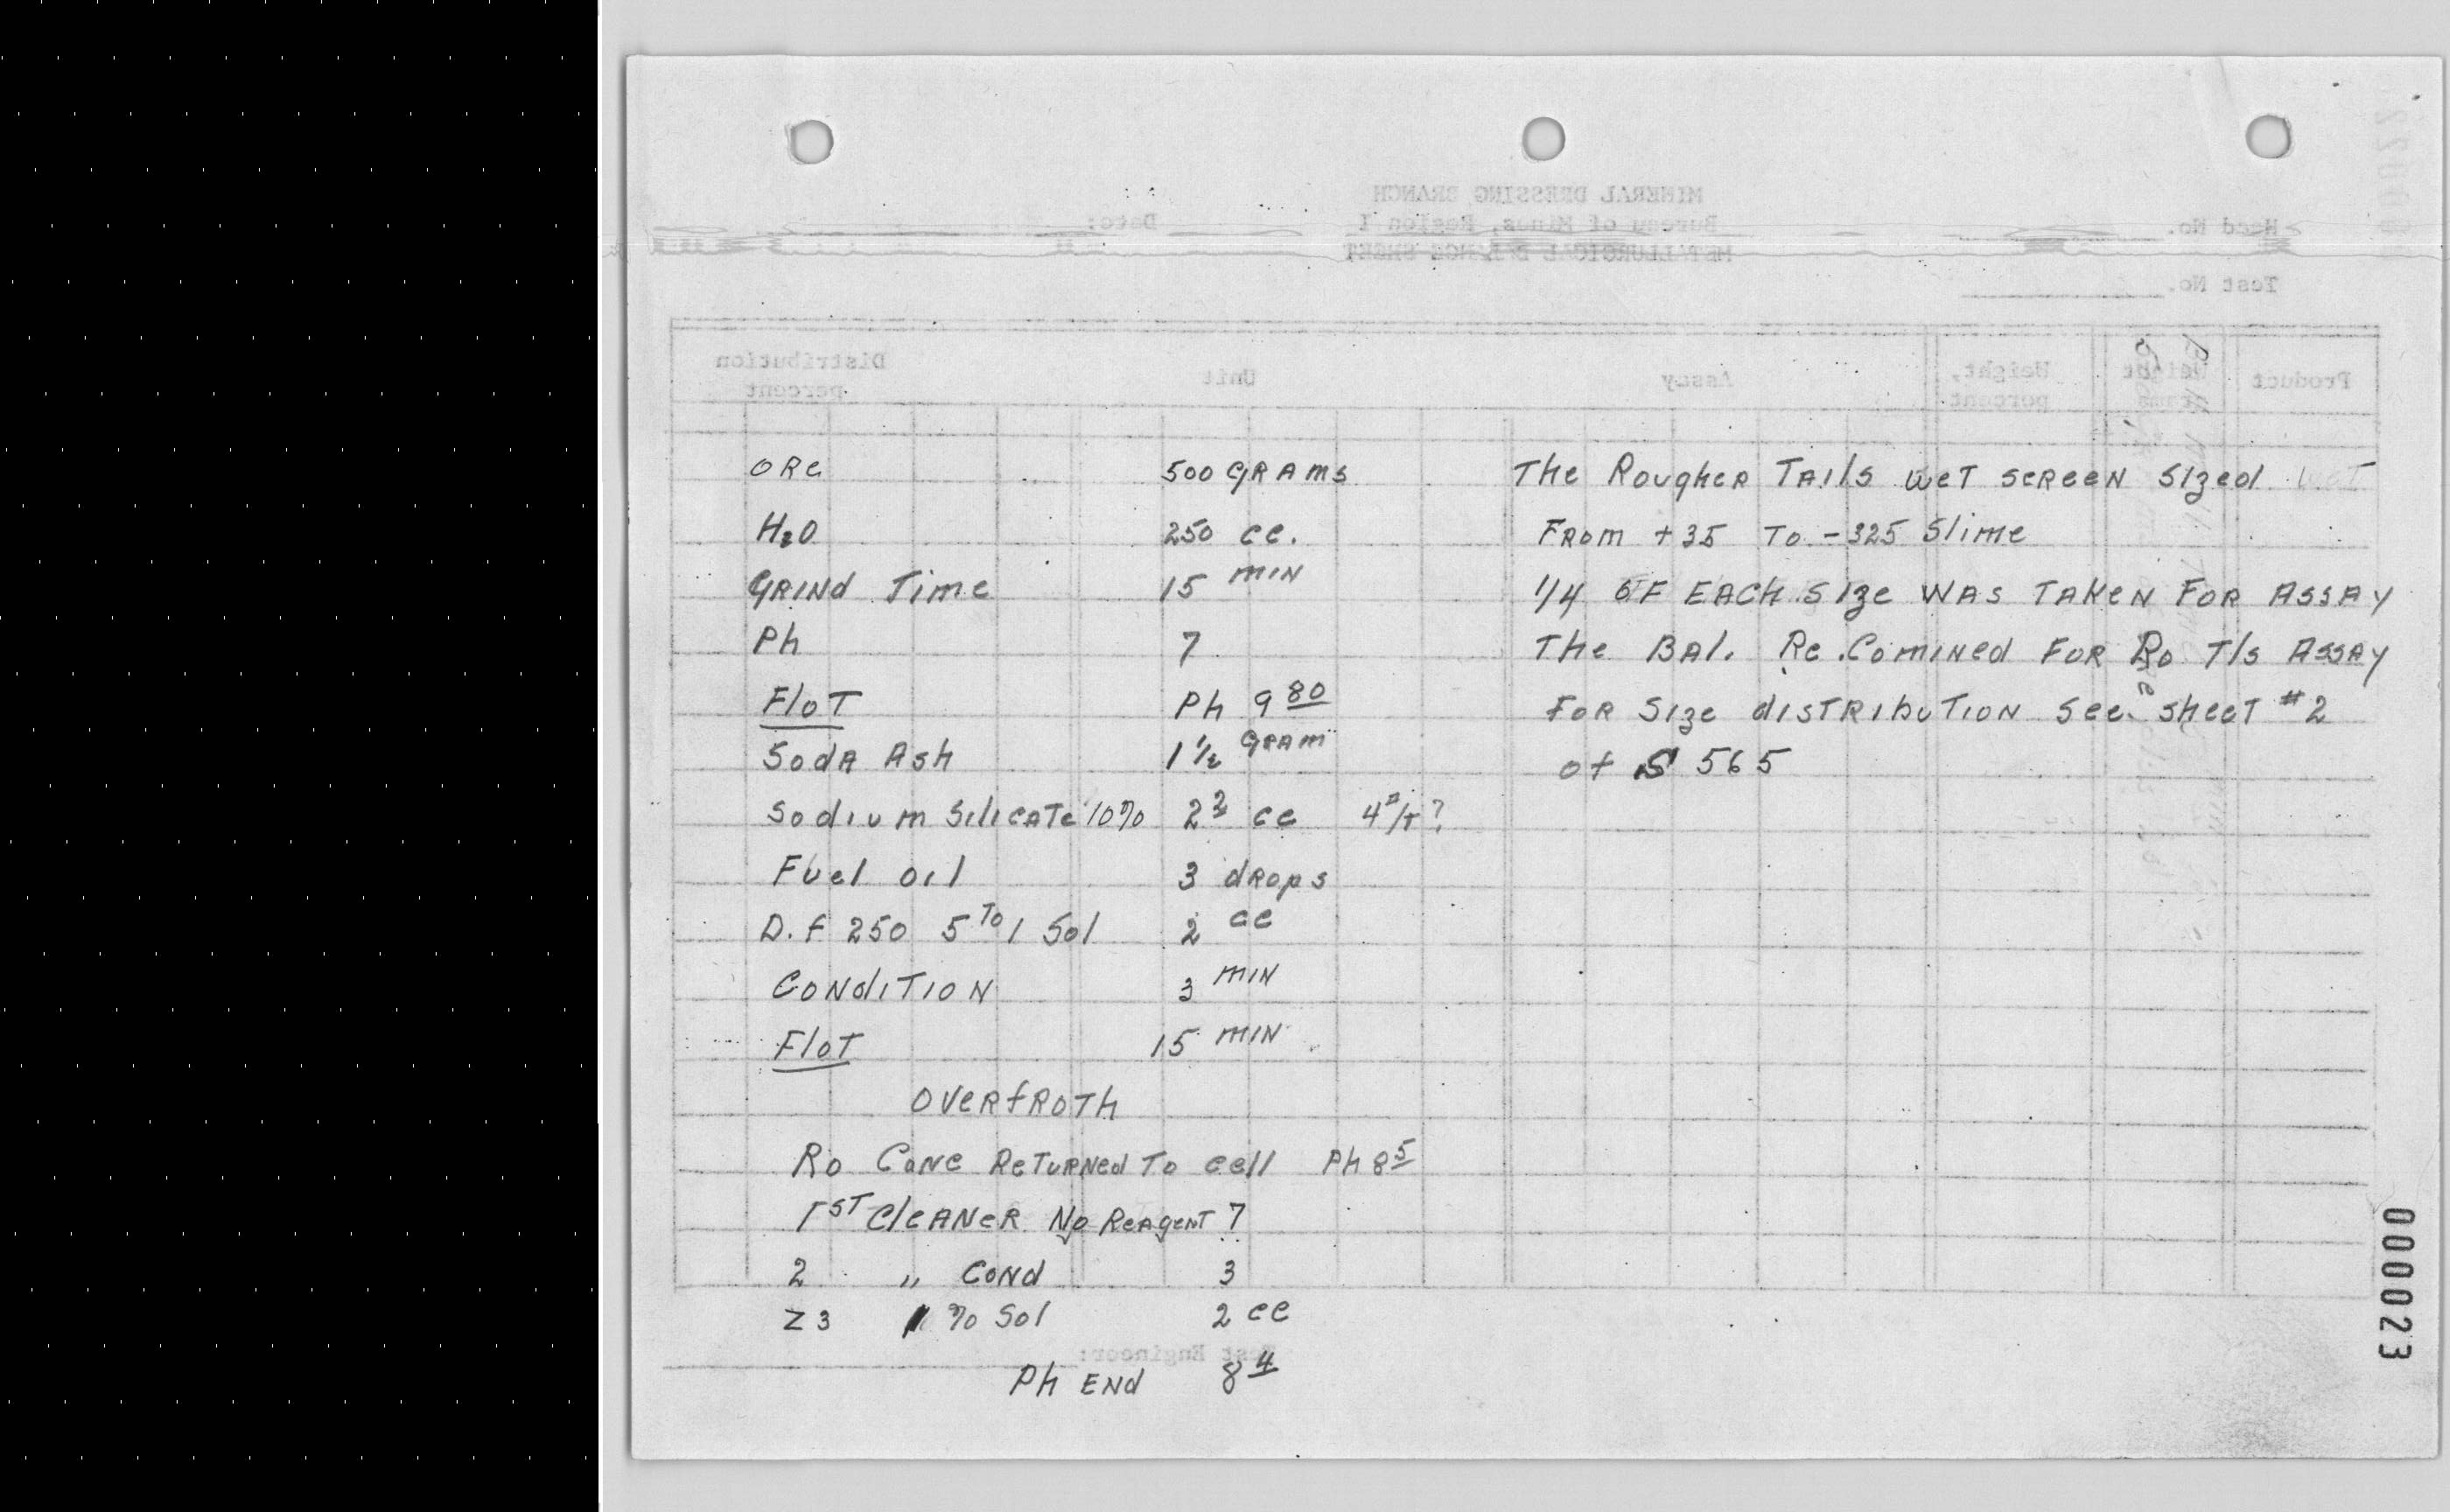 ORe 500 GRAMS
H2O 250 cc.
GRINd Time 15 MIN
Ph 7
FloT Ph 9 80
SodA Ash 1 1/2 GRAM
Sodium SilicATe 10% cc 4#/T ?
Fuel oil 3 drops
D.F 250 5 To 1 Sol 2 cc
CONdiTION 3 MIN
FloT 15 MIN
OVeRfROTh
Ro CONC ReTURNed To cell Ph 8 5
1ST CleANeR No ReAgeNT 7
2 " CONd 3
Z3 % Sol 2 cc
Ph ENd 8 4
The RougheR TAIls weT scReeN Sized
FRom +35 To -325 Slime
1/4 OF EACh Size WAS TAKeN FOR ASSAY
The BAl. Re.Comined FOR Ro T/s ASSAY
FOR Size disTRIbuTION See sheeT #2
of S 565
MINERAL DRESSING BRANCH
Bureau of Mines, Region I
METALLURGICAL BALANCE SHEET
Head No.
Date:
Test No.
Product
Weight grams
Weight, percent
Assay
Unit
Distribution percent
Test Engineer:
000023